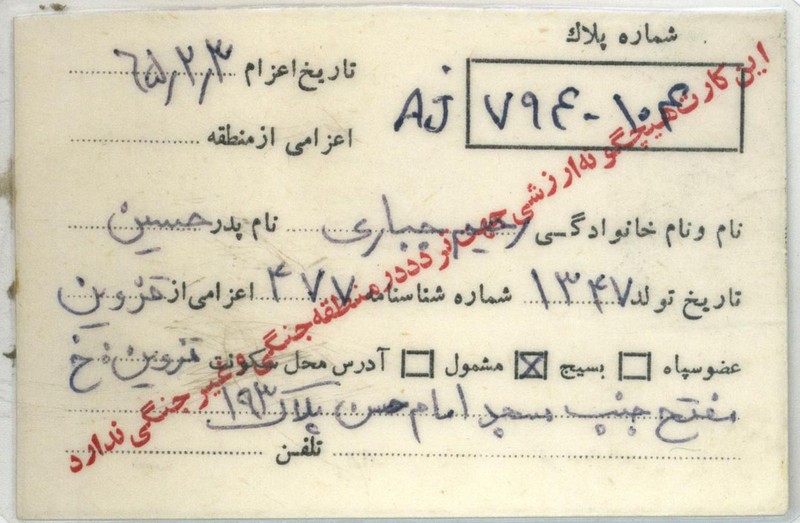 شماره پلاك
تاریخ اعزام ۶۵٫۲٫۳
AJ ۷۹۴-۱۰۴
اعزامی از منطقه
نام و نام خانوادگی رحیم جباری نام پدر حسین
تاریخ تولد ۱۳۴۷ شماره شناسنامه ۴۷۷ اعزامی از قزوین
عضو سپاه بسیج مشمول آدرس محل سکونت قزوین خ
مفتح جنب مسجد امام حسن پلاک ۱۹۳
تلفن
این کارت هیچگونه ارزشی جهت تردد در منطقه جنگی و غیر جنگی ندارد